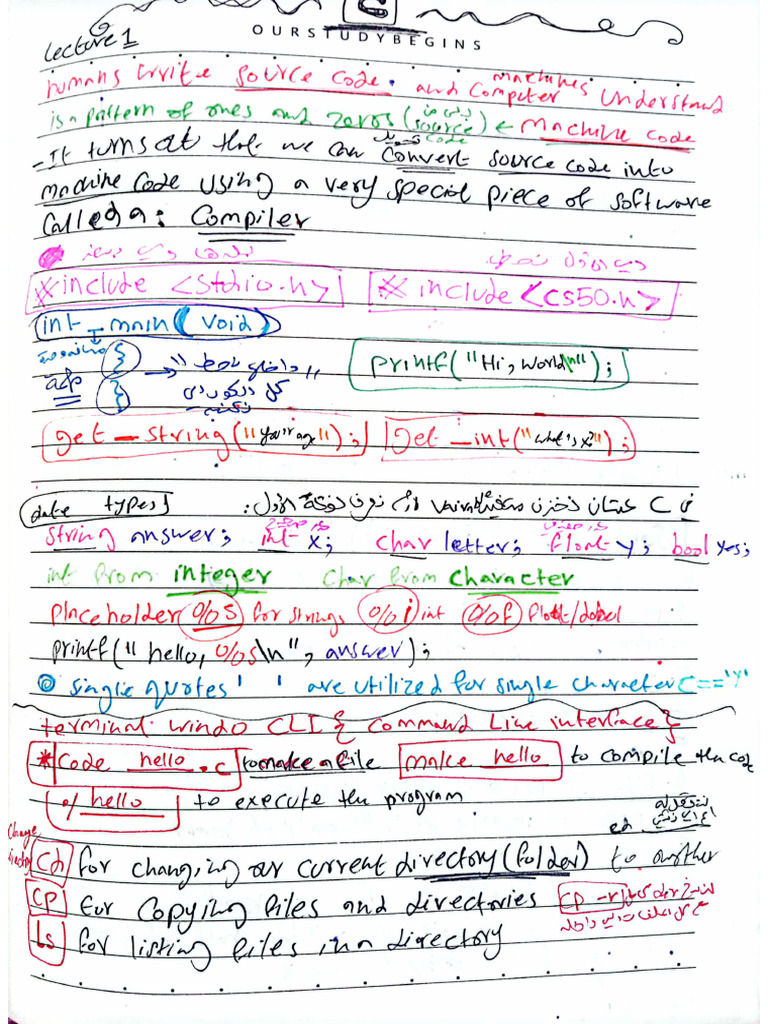 C
OURSTUDYBEGINS
Lecture 1
humans write source code. and computer machines understand
is a pattern of ones and zeros (source code) ← machine code
- It turns at that we can convert source code into
machine code using a very special piece of software
called a: compiler
#include <stdio.h> #include <cs50.h>
int main(void)
{ → داخلي نحط
} كل الكود
printf("Hi, world\n");
get_string("your age"); get_int("what's x?");
date types في C عشان نخزن variable لازم نعرف نوعه الأول:
string answer; int x; char letter; float y; bool yes;
int from integer char from character
placeholder %s for strings %i int %f float/dobel
printf("hello, %s\n", answer);
single quotes ' ' are utilized for single character c=='Y'
terminal windo CLI { Command Line interface }
* code hello.c to make a file make hello to compile the code
./hello to execute the program
change directory cd for changing our current directory (folder) to another
cp for copying files and directories cp -r
ls for listing files in a directory